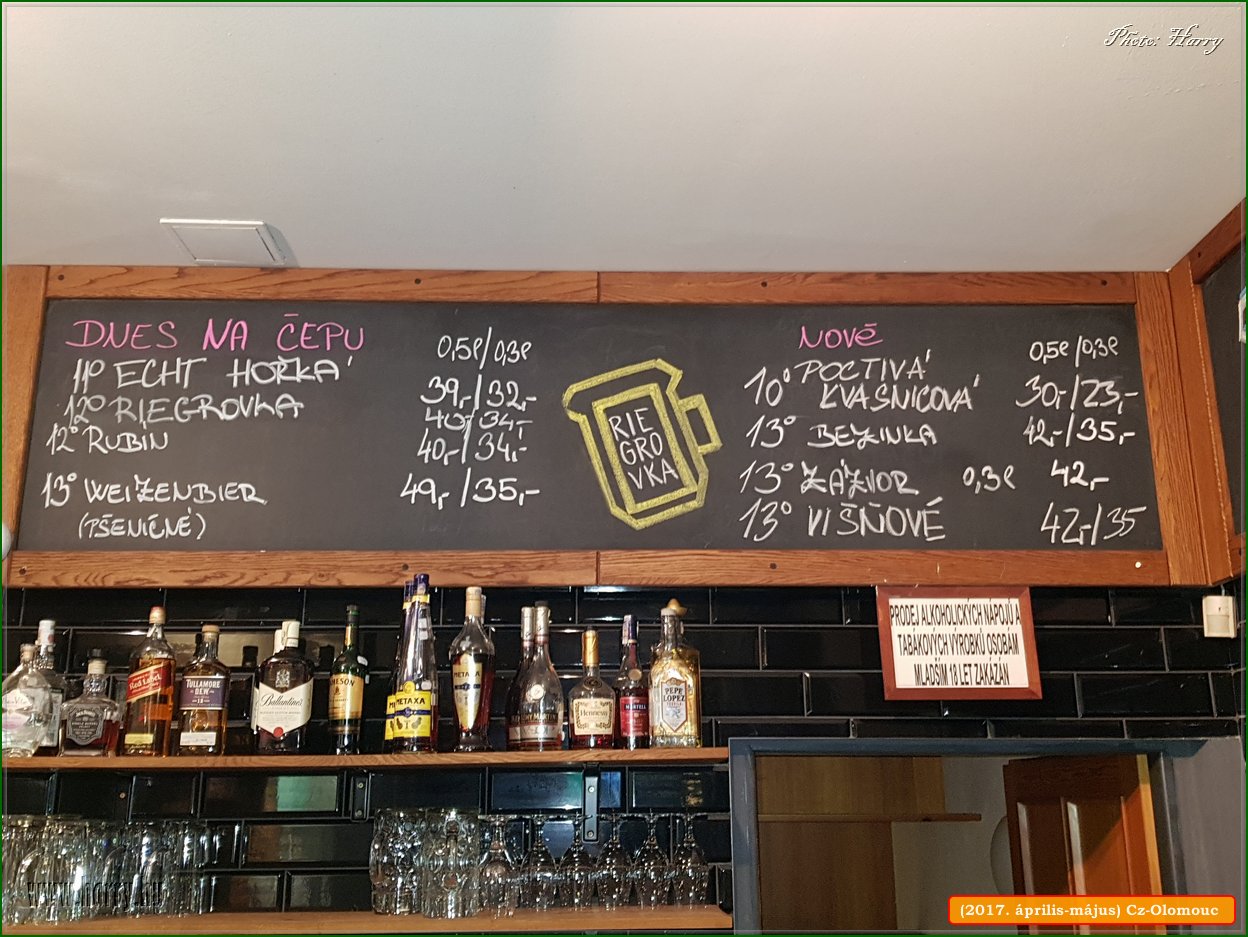 Photo: Harry
DNES NA ČEPU
0,5l/0,3l
11° ECHT HOŘKÁ
39,-/32,-
12° RIEGROVKA
40,-/34,-
12° RUBIN
40,-/34,-
13° WEIZENBIER
49,-/35,-
(PŠENIČNÉ)
RIE
GRO
VKA
NOVĚ
0,5l/0,3l
10° POCTIVÁ
KVASNICOVÁ
30,-/23,-
13° BEZINKA
42,-/35,-
13° ZÁZVOR 0,3l 42,-
13° VIŠŇOVÉ
42,-/35
PRODEJ ALKOHOLICKÝCH NÁPOJŮ A
TABÁKOVÝCH VÝROBKŮ OSOBÁM
MLADŠÍM 18 LET ZAKÁZÁN
Red Label
TULLAMORE
DEW
Ballantines
JAMESON
METAXA
METAXA
Hennessy
MARTELL
PEPE
LOPEZ
www.harry.hu
(2017. április-május) Cz-Olomouc